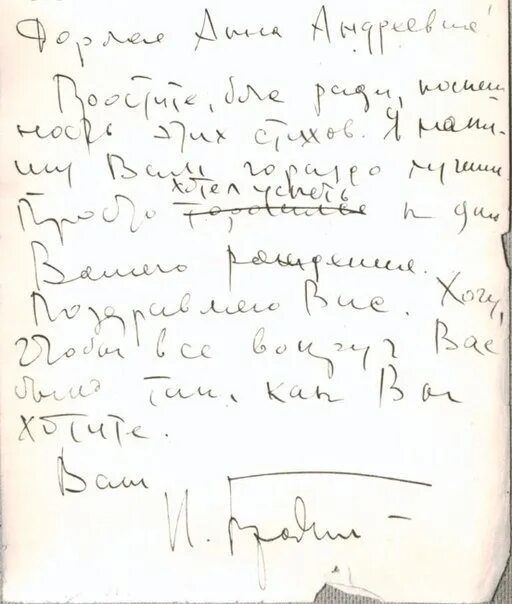 Дорогая Анна Андреевна!
Простите, бога ради, поспеш-
ность этих стихов. Я напи-
шу Вам гораздо лучшие.
хотел успеть
Просто торопился к дню
Вашего рождения.
Поздравляю Вас. Хочу,
чтобы все вокруг Вас
было так, как Вы
хотите.
Ваш
И. Бродский